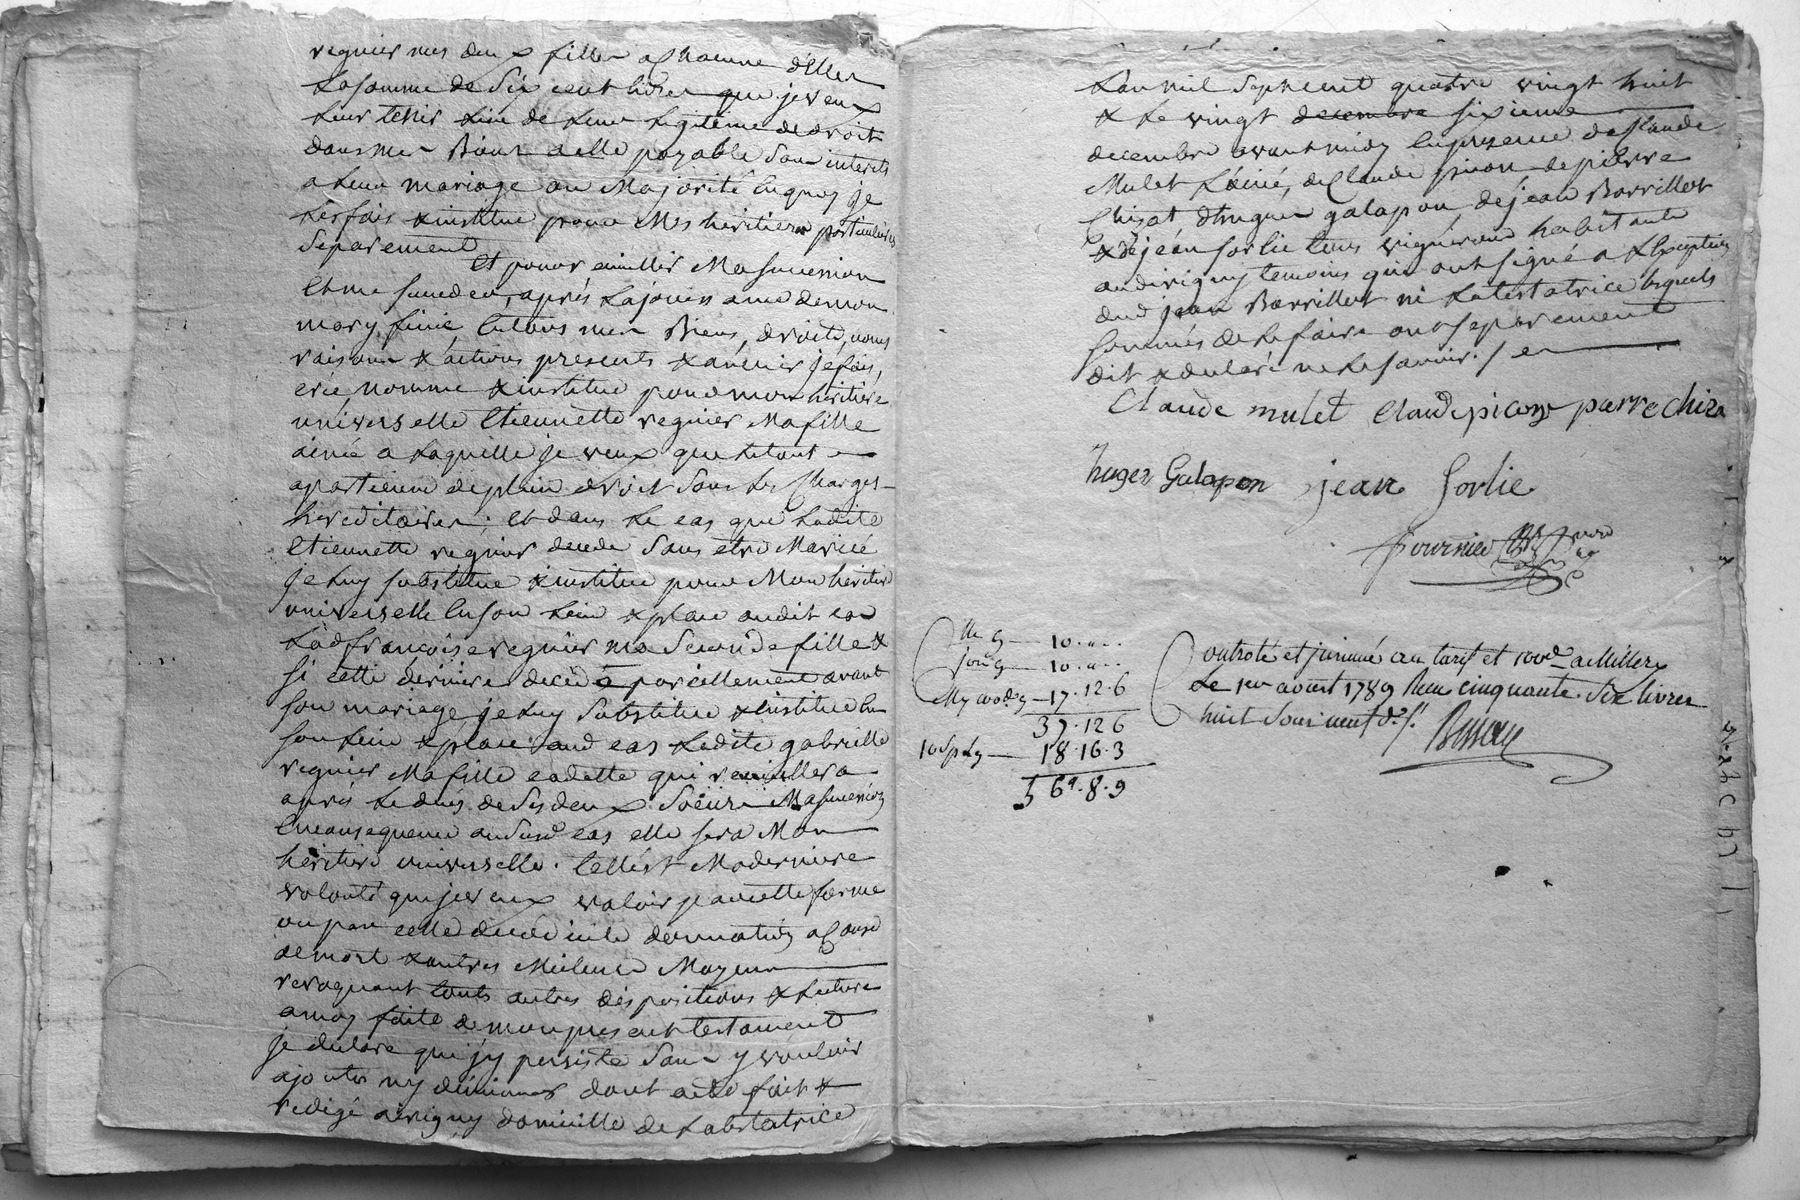 regnier mes deux filles a chacune d'elles
La somme de Six cent livres que je veux
Leur tenir Lieu de Leur Legitime de droit
dans mes Biens a elle payable Sans interets
a Leur mariage ou Majorité En quoy je
Les fais & institue pour Mes heritieres particulieres
Separement
Et pour cuillir Ma Succession
Et me Succeder, aprés La jouissance de mon
mary finie En tous mes Biens, droits, noms
raisons & actions presents & a venir je fais,
crée, nomme & institue pour mon héritiere
universelle Etiennette regnier Ma fille
ainée a Laquelle je veux que Le tout
apartienne de plein droit Sous Les Charges
hereditaires; Et dans Le cas que Ladite
Etiennette regnier decede Sans etre Mariée
je Luy Substitue & institue pour Mon héritiere
universelle En Son Lieu & place audit cas
Lad françoise regnier ma Seconde fille &
Si cette derniere decede pareillement avant
Son mariage, je Luy Substitue & institue En
Son Lieu & place aud cas Ladite gabrielle
regnier Ma fille cadette qui recuillera
aprés Le décés de Ses deux Soeurs Ma Succession
En consequence au Susd cas elle Sera Mon
héritiere universelle. Telle est Ma derniere
volonté que je veux valoir par cette forme
ou par celle de codicile donnation a Cause
de mort & autres Meilleurs Moyens
revoquant touts autres dispositions & Lecture
a moy faite de mon present testament
je declare que j'y persiste Sans y vouloir
ajouter ny diminuer dont acte fait &
redigé a irigny domicille de La testatrice
L'an mil Sept cent quatre vingt huit
& Le vingt decembre sixieme
decembre avant midy En presence de Claude
Mulet L'ainé, de Claude picon de pierre
Chizat d'hugues galapon de jean Barrillot
& de jean Sorlie tous vignerons habitants
audit irigny temoins qui ont signé a L'Exception
dud jean Barrillot ni La testatrice Lesquels
Sommés de Le faire ont separement
dit & declaré ne Le Savoir ./.
Claude mulet Claude picon pierre Chiza
huges Galapon jean Sorlie
fournier
10 . " . "
10 . " . "
17 . 12 . 6
37 . 12 6
10 S p L 18 . 16 . 3
56 . 8 . 9
Controlé et insinué au tarif et 100e a Millery
Le 1er aoust 1789 Reçu cinquante Six livres
huit Sous neuf d.